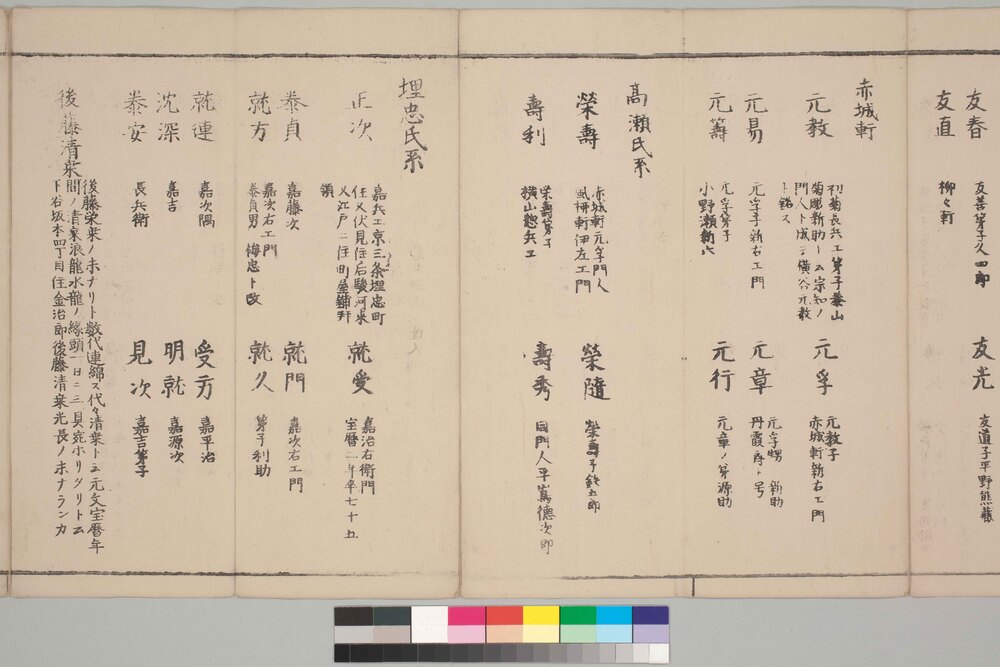 友春
友善弟子久四郎
友光
友道子平野熊蔵
友直
柳々軒
赤城軒
元教
初菊長兵エ弟子兼山
菊彫新助ト云宗知ノ
門人ト成ニ横谷元教
ト銘ス
元孚
元教子
赤城軒新右エ門
元易
元孚弟新右エ門
元章
元孚甥 新助
丹霞齋ト号
元籌
元孚弟子
小野瀬新六
元行
元章ノ弟源助
高瀬氏系
榮壽
赤城軒元孚門人
風柳軒伊左エ門
榮隨
榮壽子鉄五郎
壽利
栄壽弟子
横山惣兵エ
壽秀
同門人平嶌德次郎
埋忠氏系
正次
嘉兵エ京三条埋忠町
住又伏見住后駿河来
又江戸ニ住町屋鋪拝
領
就受
嘉治右衛門
宝暦二年卒七十五
泰貞
嘉藤次
就門
嘉次右エ門
就方
嘉次右エ門
泰貞男 梅忠ト改
就久
弟子利助
就連
嘉次隅
受方
嘉平治
沈深
嘉吉
明就
嘉源次
泰安
長兵衛
見次
嘉吉弟子
後藤清乗
後藤栄乗ノ末ナリト数代連綿ス代々清乗ト云元文宝暦年
間ノ清乗浪龍水龍ノ縁頭一日ニ三具宛ホリタリト云
下谷坂本四丁目住金治郎後藤清乗光長ノ末ナランカ